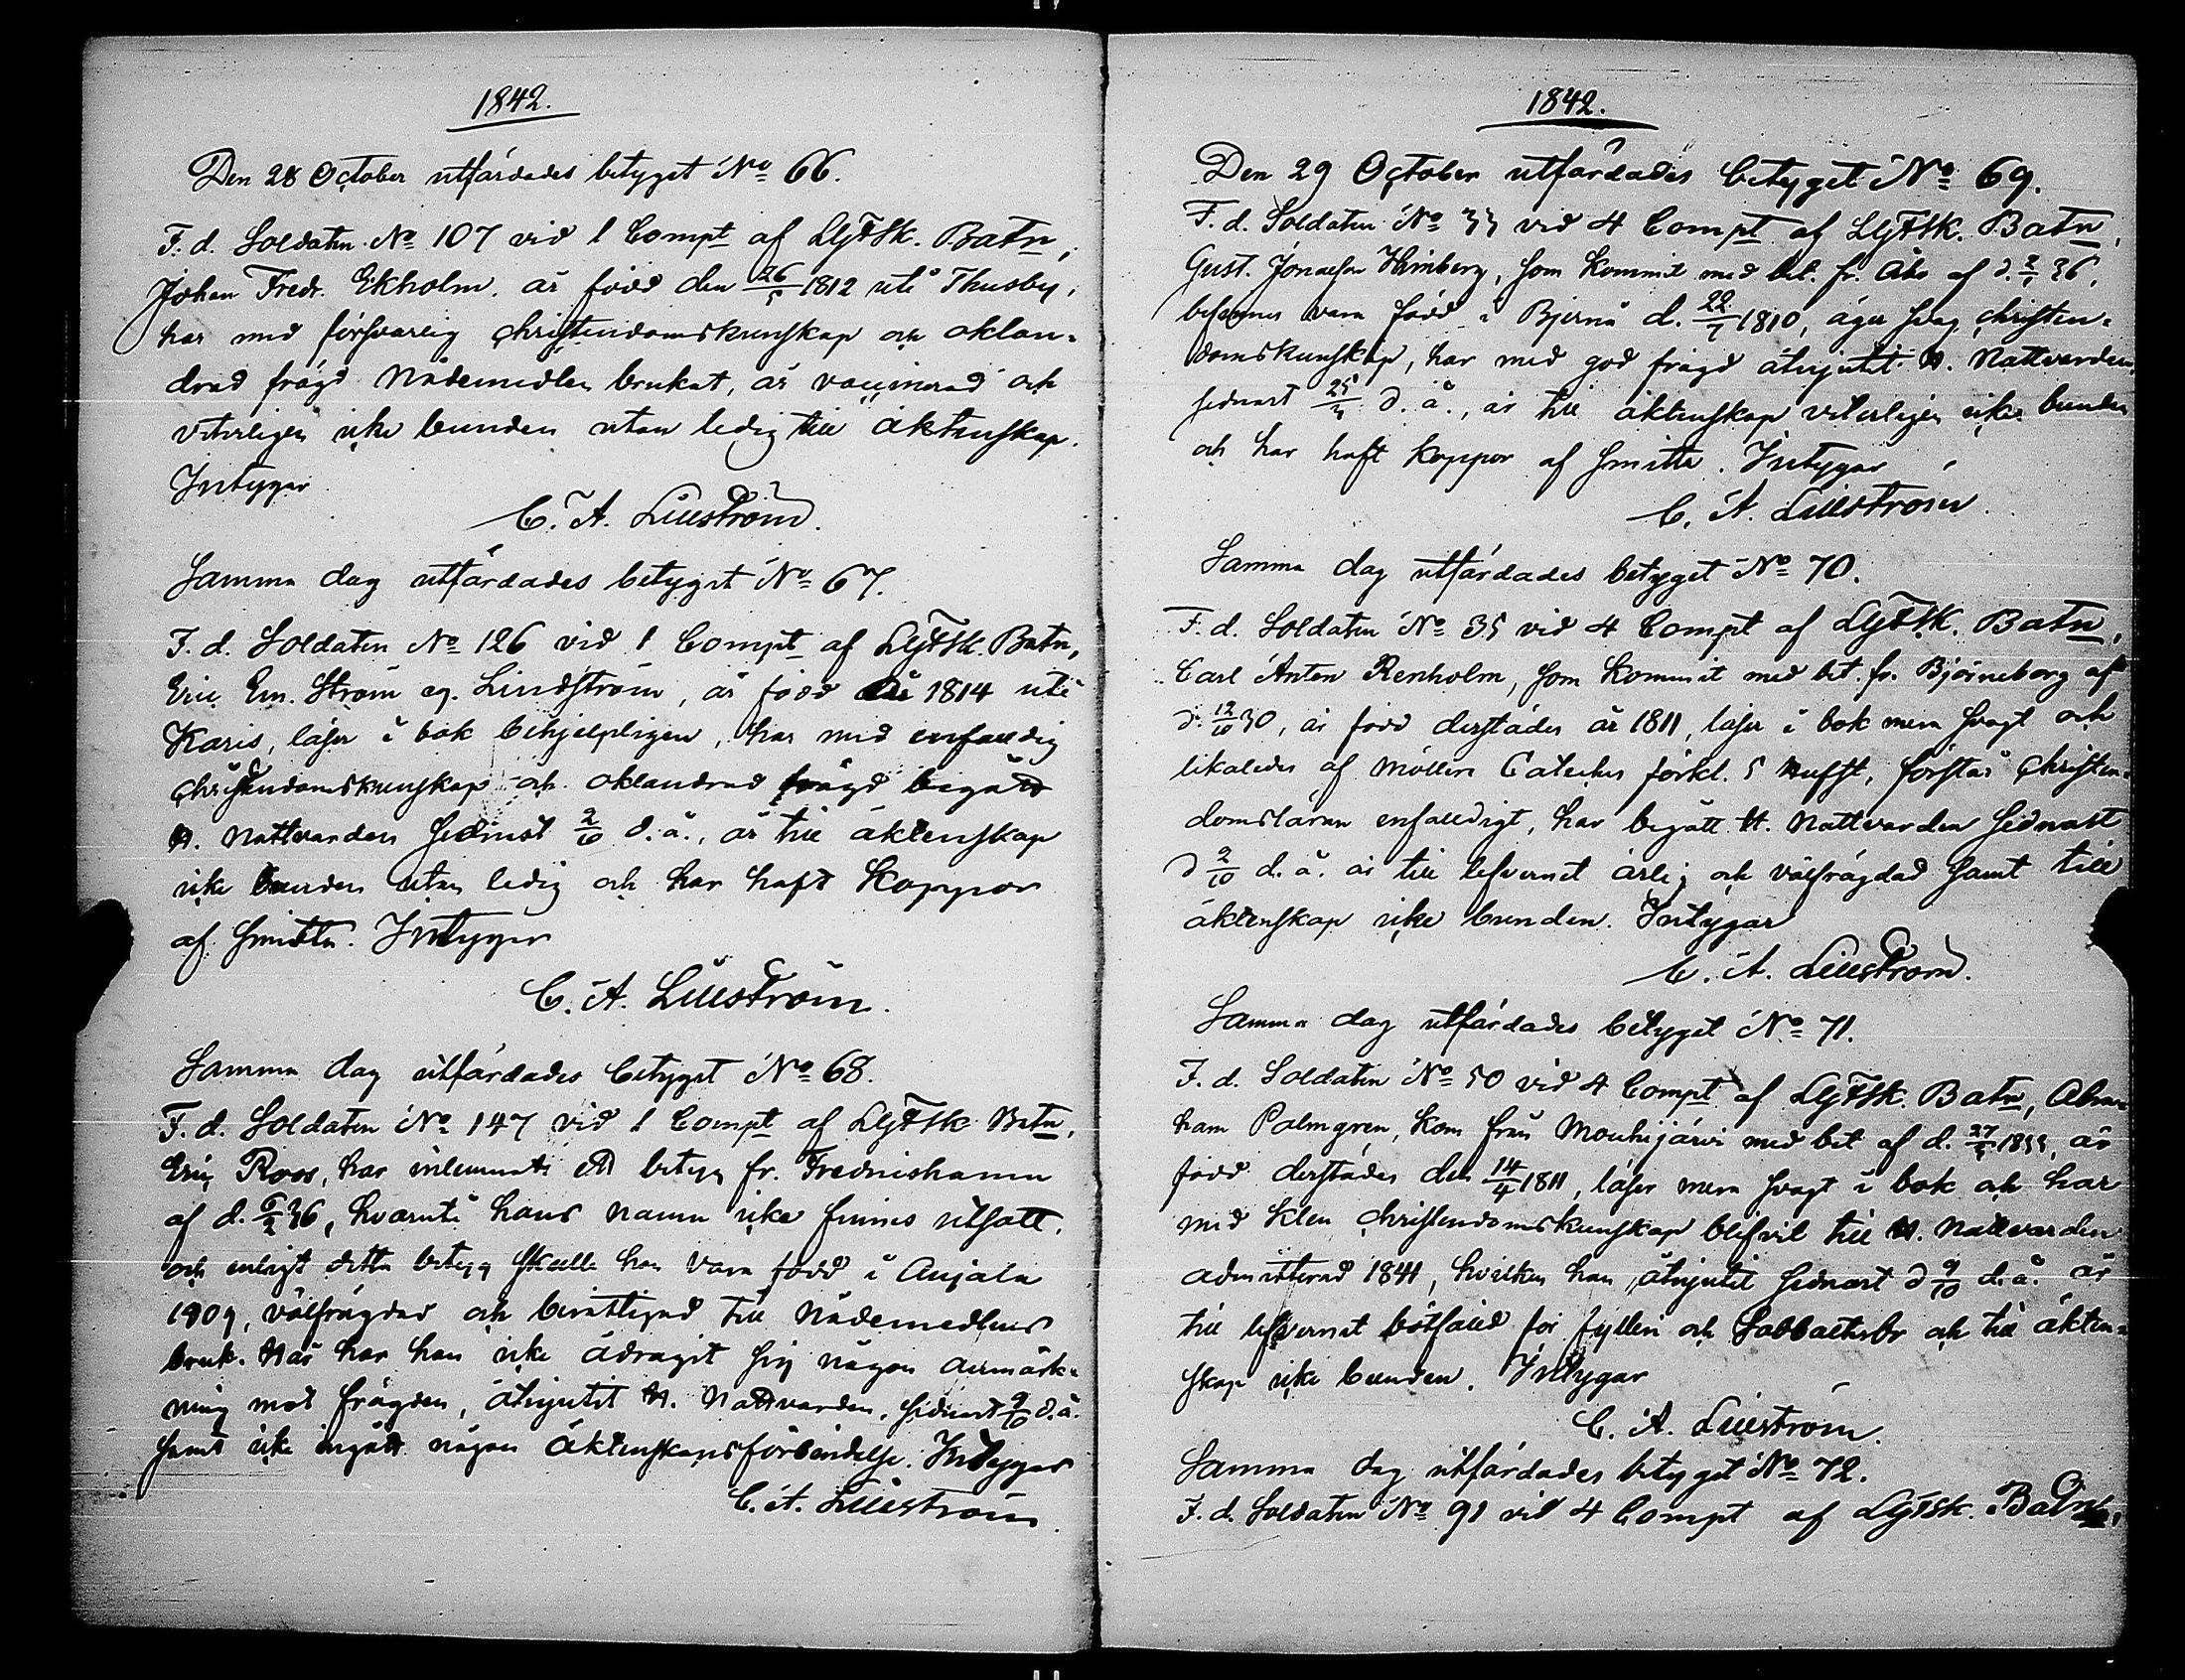 1842.
Den 28 October utfärdades betyget No 66.
F. d. Soldaten No 107 vid 1 Compt af LgFSk. Batn,
Johan Fredr. Ekholm, är född den 26/5 1812 uti Thusby,
har med försvarlig christendomskunskap och oklan-
drad frägd Nådemedlen brukat, är vaccinerad och
veterligen icke bunden utan ledig till äktenskap.
Intygar
C. A. Lilleström.
Samma dag utfärdades betyget No 67.
F. d. Soldaten No 126 vid 1 Compt af LgFSk. Batn,
Eric Em. Ström eg. Lindström, är född år 1814 uti
Karis, läser i bok behjelpligen, har med enfaldig
christendomskunskap och oklandrad frägd begått
H. Nattvarden sednast 2/10 d. å., är till äktenskap
icke bunden utan ledig och har haft Koppor
af smitta. Intygar
C. A. Lilleström.
Samma dag utfärdades betyget No 68.
F. d. Soldaten No 147 vid 1 Compt af LgFSk Batn,
Eric Roos, har inlemnat ett betyg fr. Fredrishamn
af d. 6/2 36, hvaruti hans namn icke finnes utsatt,
och enligt detta betyg skulle han vara född i Anjala
1809, välfrägdad och berättigad till Nådemedlens
bruk. Här har han icke ådragit sig någon anmärk-
ning mot frägden, åtnjutit H. Nattvarden, sednast 9/10 d. å.
samt icke ingått någon äktenskapsförbindelse. Intygar
C. A. Lilleström
1842.
Den 29 October utfärdades betyget No 69.
F. d. Soldaten No 33 vid 4 Compt af LgFSk. Batn,
Gust. Jonasson Himberg, som kommit med bet. fr. Åbo af d. 36,
befinnes vara född i Bjernå d. 22/7 1810, äger svag christen-
domskunskap, har med god frägd åtnjutit H. Nattvarden,
sednast d. å., är till äktenskap veterligen icke bunden
och har haft koppor af smitta. Intygar
C. A. Lilleström
Samma dag utfärdades betyget No 70.
F. d. Soldaten No 35 vid 4 Compt af LgFSk. Batn,
Carl Anton Renholm, som kommit med bet. fr. Björneborg af
d. 12/10 30, är född derstädes år 1811, läser i bok mera svagt och
likaledes af Möllers Cateches förkl. 5 Hufst, förstår christen-
domsläran enfaldigt, har begått H. Nattvarden sednast
d 2/10 d. å. är till lefvernet ärlig och välfrägdad samt till
äktenskap icke bunden. Intygar
C. A. Lilleström.
Samma dag utfärdades betyget No 71.
F. d. Soldaten No 50 vid 4 Compt af LgFSk. Batn, Abra-
ham Palmgren, kom från Mouhijärvi med bet af d. är
född derstädes den 14/4 1811, läser mera svagt i bok och har
med klen christendomskunskap blifvit till H. Nattvarden
admitterad 1841, hvilken han åtnjutit sednast d 9/10 d. å. är
till lefvernet bötfälld för fylleri och Sabbatsbr och till äkten-
skap icke bunden. Intygar
C. A. Lilleström.
Samma dag utfärdades betyget No 72.
F. d. Soldaten No 91 vid 4 Compt af LgFSk. Batn,